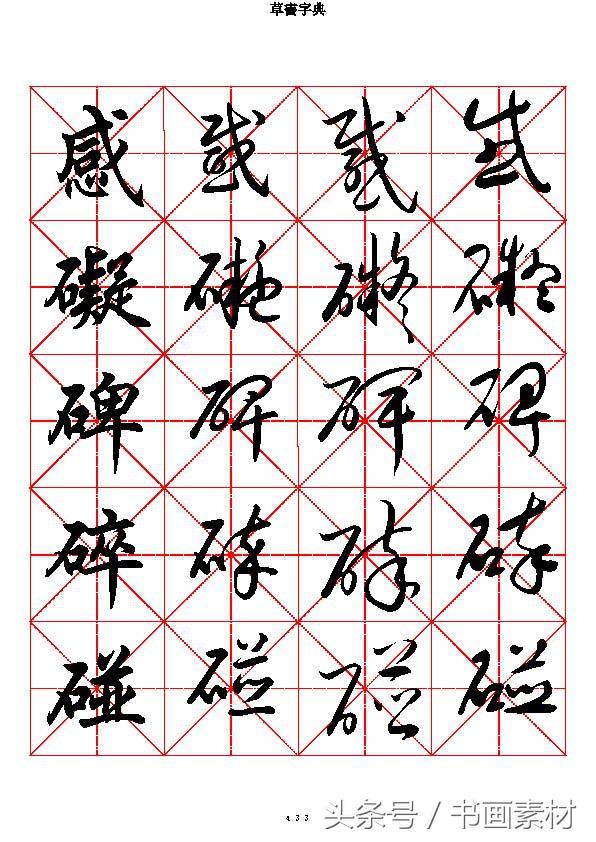 草書字典
感 感 感 感
礙 礙 礙 礙
碑 碑 碑 碑
碎 碎 碎 碎
碰 碰 碰 碰
433
头条号 / 书画素材